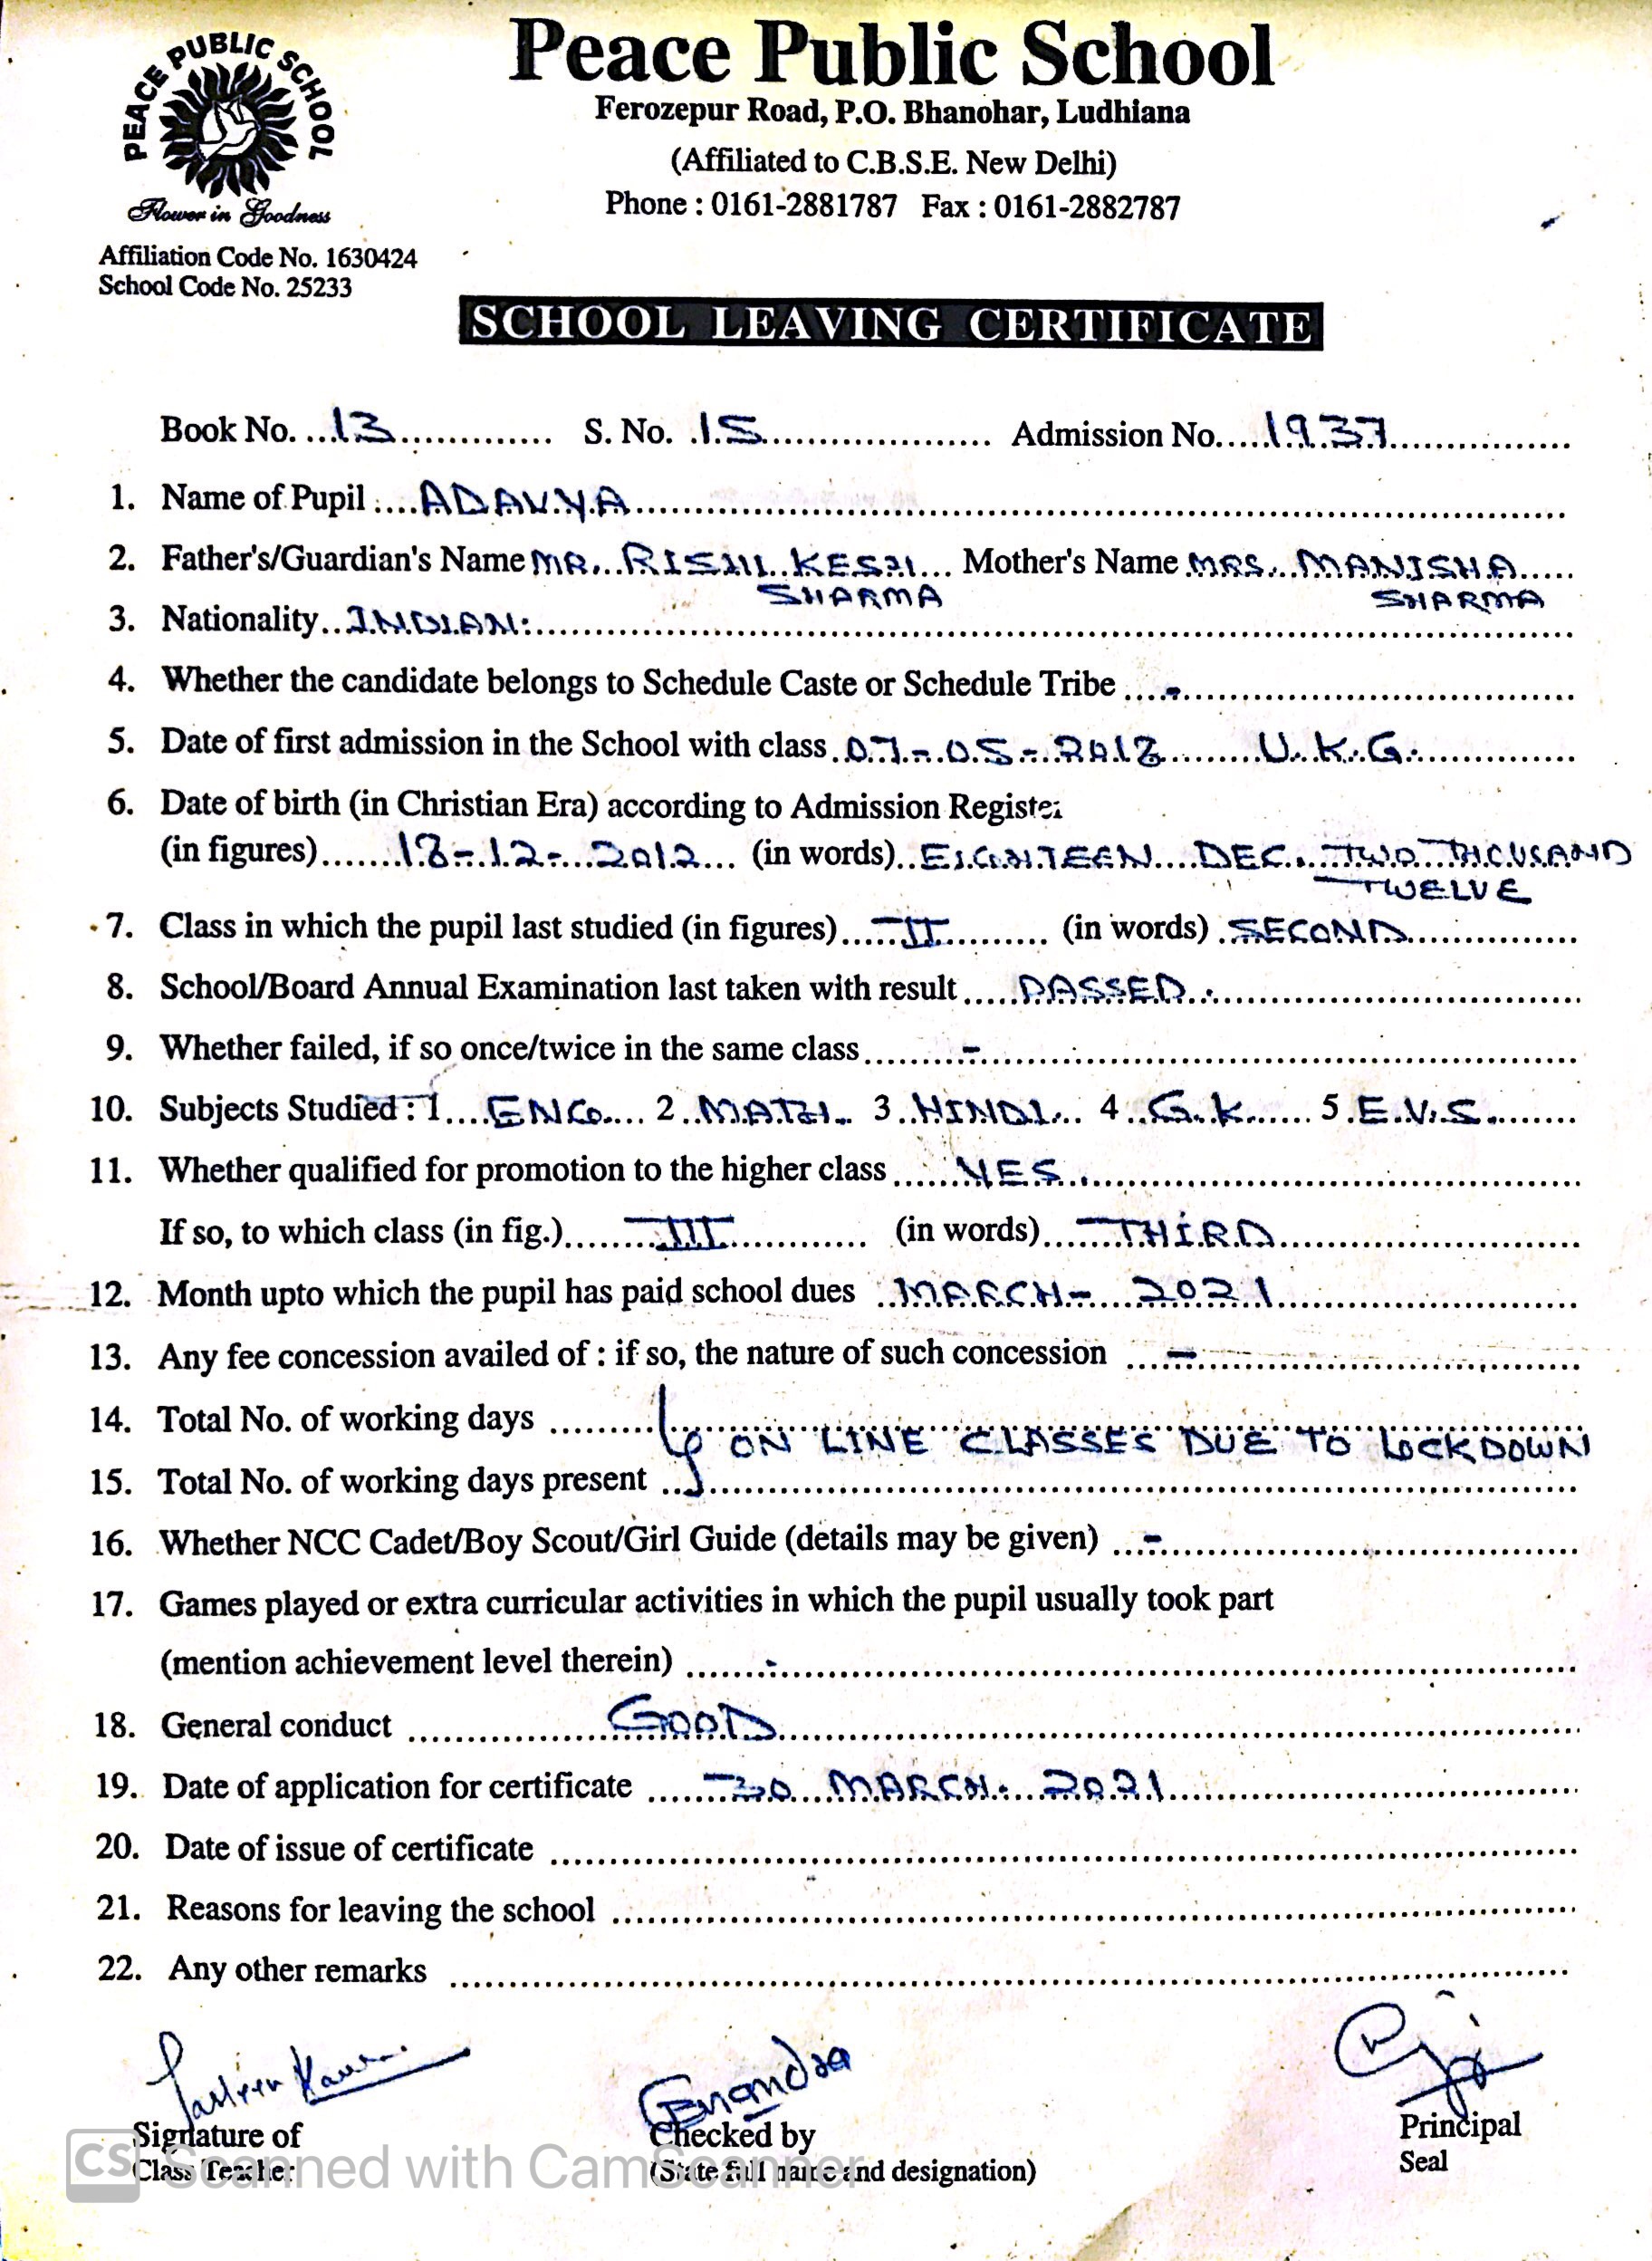 PEACE PUBLIC SCHOOL
Flower in Goodness
Peace Public School
Ferozepur Road, P.O. Bhanohar, Ludhiana
(Affiliated to C.B.S.E. New Delhi)
Phone : 0161-2881787 Fax : 0161-2882787
Affiliation Code No. 1630424
School Code No. 25233
SCHOOL LEAVING CERTIFICATE
Book No. 13 S. No. 15 Admission No. 1937
1. Name of Pupil : ADAVYA
2. Father's/Guardian's Name MR. RISHI KESH SHARMA Mother's Name MRS. MANISHA SHARMA
3. Nationality INDIAN
4. Whether the candidate belongs to Schedule Caste or Schedule Tribe -
5. Date of first admission in the School with class 07-05-2018 U.K.G.
6. Date of birth (in Christian Era) according to Admission Register
(in figures) 18-12-2012 (in words) EIGHTEEN DEC. TWO THOUSAND
TWELVE
7. Class in which the pupil last studied (in figures) II (in words) SECOND
8. School/Board Annual Examination last taken with result PASSED.
9. Whether failed, if so once/twice in the same class -
10. Subjects Studied : 1 ENG. 2 MATH. 3 HINDI 4 G.K. 5 E.V.S.
11. Whether qualified for promotion to the higher class YES
If so, to which class (in fig.) III (in words) THIRD
12. Month upto which the pupil has paid school dues MARCH- 2021
13. Any fee concession availed of : if so, the nature of such concession -
14. Total No. of working days
ON LINE CLASSES DUE TO LOCKDOWN
15. Total No. of working days present
16. Whether NCC Cadet/Boy Scout/Girl Guide (details may be given) -
17. Games played or extra curricular activities in which the pupil usually took part
(mention achievement level therein) -
18. General conduct GOOD
19. Date of application for certificate 30 MARCH. 2021
20. Date of issue of certificate
21. Reasons for leaving the school
22. Any other remarks
Signature of Checked by Principal
Class Teacher (State full name and designation) Seal
CS Scanned with CamScanner